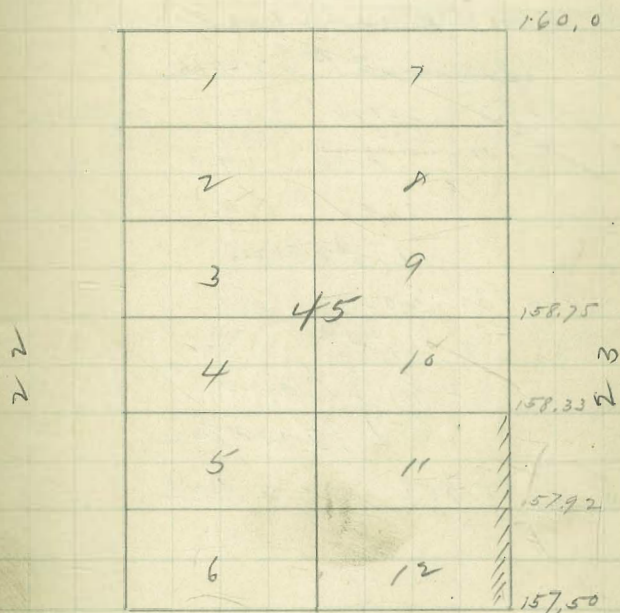 160,0
1 7
2 8
3 9
45
158.75
22
23
4 10
158.33
5 11
157.92
6 12
157.50